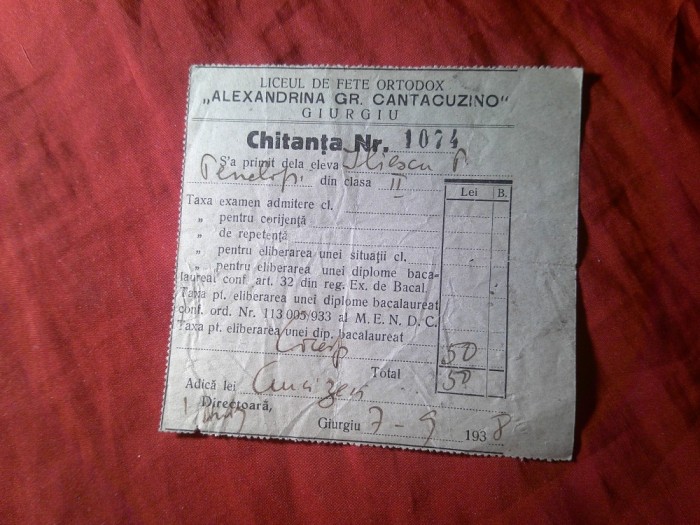 LICEUL DE FETE ORTODOX
„ALEXANDRINA GR. CANTACUZINO"
GIURGIU
Chitanța Nr. 1074
S'a primit dela eleva Iliescu P.
Penelopi din clasa II
Lei B.
Taxa examen admitere cl.
„ pentru corijență
„ de repetență
„ pentru eliberarea unei situații cl.
„ pentru eliberarea unei diplome baca-
laureat conf. art. 32 din reg. Ex. de Bacal.
Taxa pt. eliberarea unei diplome bacalaureat
conf. ord. Nr. 113 005/933 al M. E. N. D. C.
Taxa pt. eliberarea unei dip. bacalaureat
50
Total 50
Adică lei Cincizeci
Directoară,
Giurgiu 7 - 9 1938